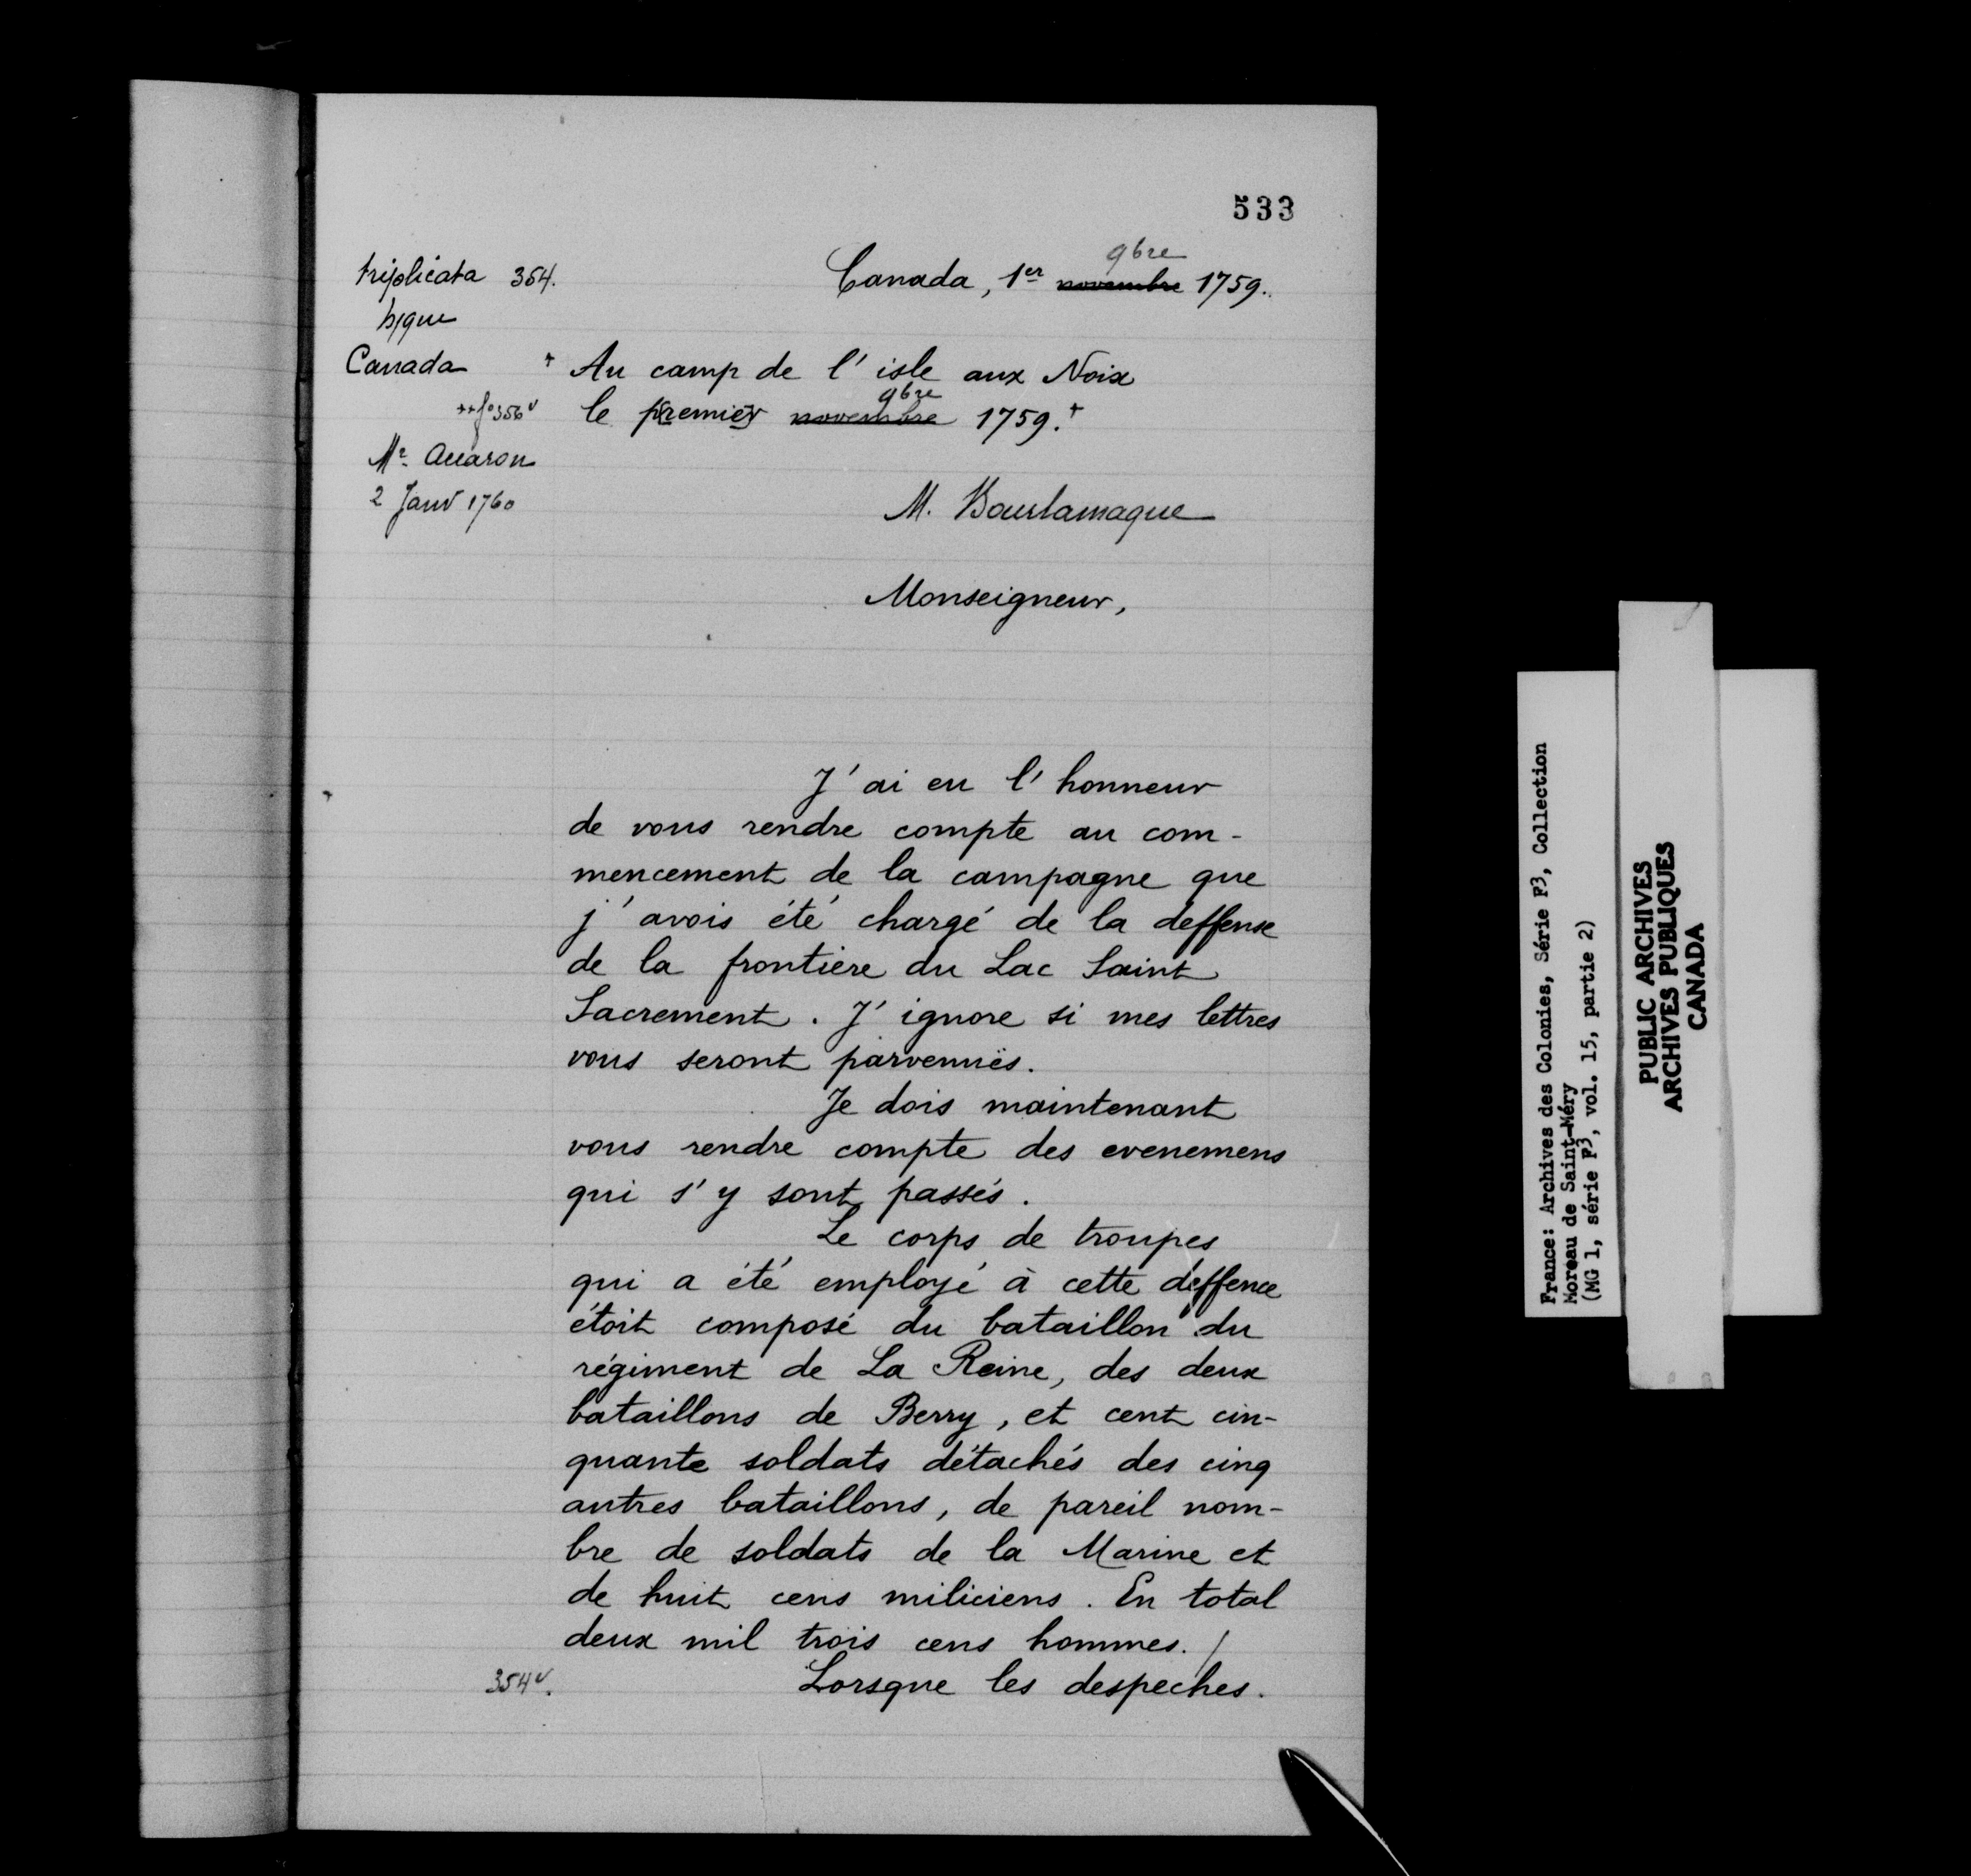 533
triplicata 354.
Canada, 1er 9bre novembre 1759.
Canada
+ Au camp de l'isle aux Noix
++ f° 356v
le premier 9bre novembre 1759.+
Mr. Accaron
2 Janv 1760
M. Bourlamaque
Monseigneur,
J'ai eu l'honneur
de vous rendre compte au com-
mencement de la campagne que
j'avois été chargé de la deffense
de la frontiere du Lac Saint
Sacrement. J'ignore si mes lettres
vous seront parvenuës.
Je dois maintenant
vous rendre compte des evenemens
qui s'y sont passés.
Le corps de troupes
qui a été employé à cette deffence
étoit composé du bataillon du
régiment de La Reine, des deux
bataillons de Berry, et cent cin-
quante soldats détachés des cinq
autres bataillons, de pareil nom-
bre de soldats de la Marine et
de huit cens miliciens. En total
deux mil trois cens hommes. /
354v.
Lorsque les despeches.
France: Archives des Colonies, Série F3, Collection
Moreau de Saint-Méry
(MG 1, série F3, vol. 15, partie 2)
PUBLIC ARCHIVES
ARCHIVES PUBLIQUES
CANADA